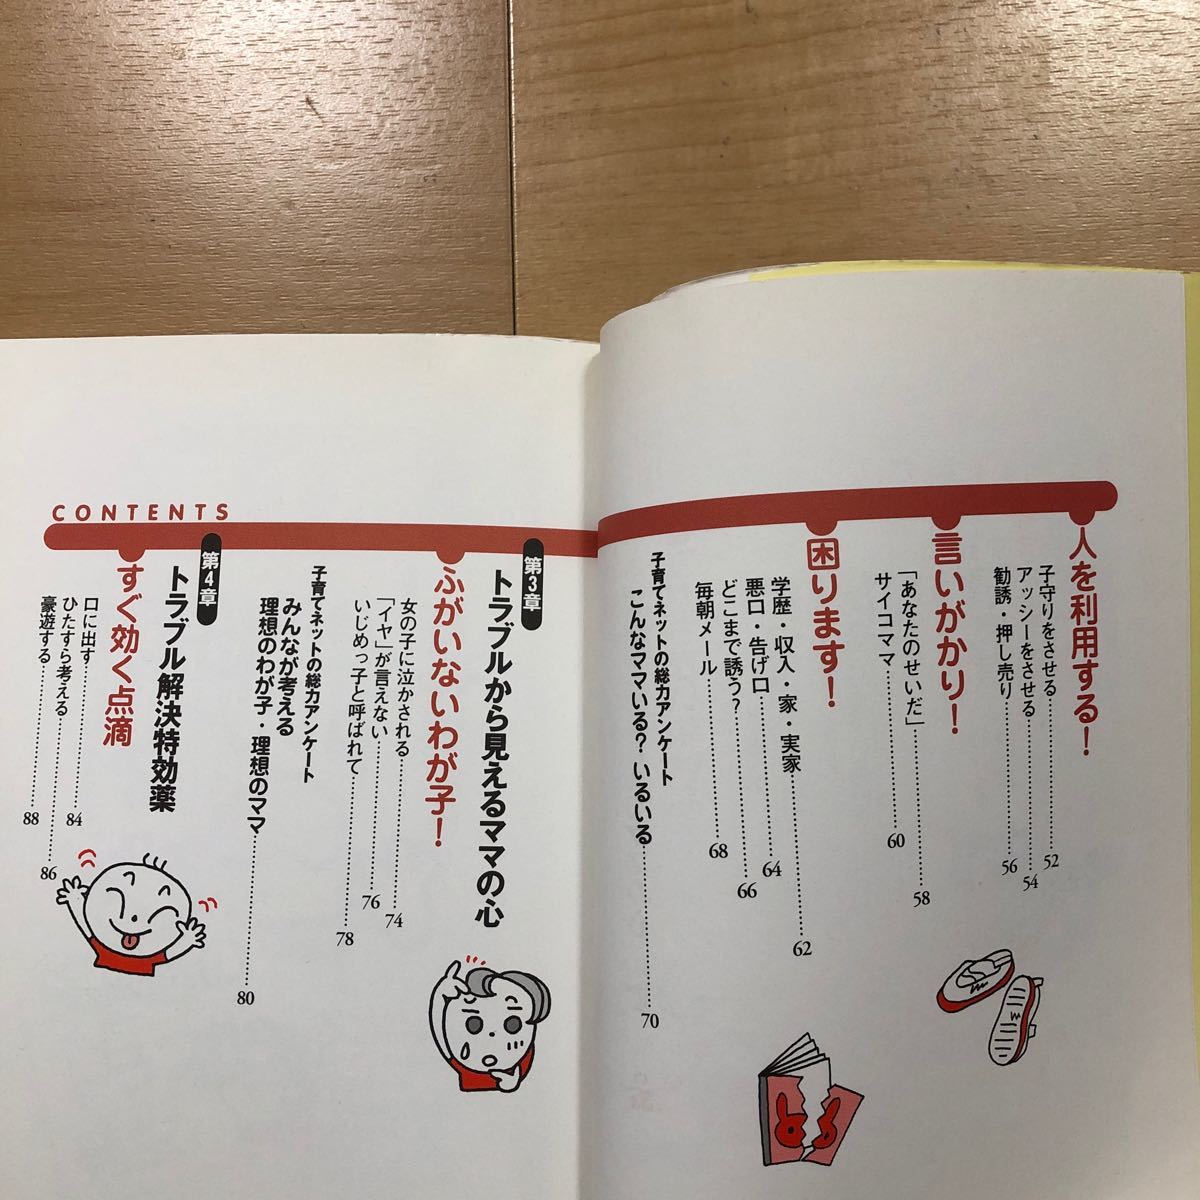 人を利用する！
子守りをさせる……52
アッシーをさせる……54
勧誘・押し売り……56
言いがかり！
「あなたのせいだ」……58
サイコママ……60
困ります！
学歴・収入・家・実家……62
悪口・告げ口……64
どこまで誘う？……66
毎朝メール……68
子育てネットの総力アンケート
こんなママいる？いるいる……70
CONTENTS
第3章
トラブルから見えるママの心
ふがいないわが子！
女の子に泣かされる……74
「イヤ」が言えない……76
いじめっ子と呼ばれて……78
子育てネットの総力アンケート
みんなが考える
理想のわが子・理想のママ……80
第4章
トラブル解決特効薬
すぐ効く点滴
口に出す……84
ひたすら考える……86
豪遊する……88